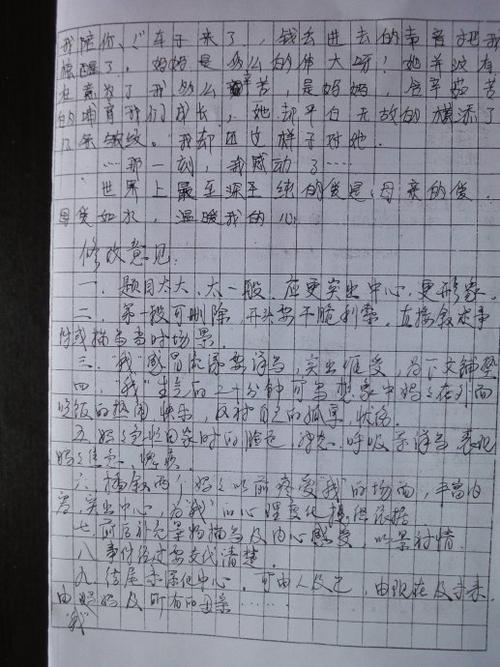 我陪你，"车子来了，钱丢进去的声音把我
惊醒了，妈妈是多么的伟大呀！她并没有
在意为了我多么辛苦，是妈妈，含辛茹苦
的哺育我们成长，她却平白无故的横添了
几条皱纹。我却还这样子对她.
……那一刻，我感动了……
世界上最至深平纯的爱是:母亲的爱.
母爱如水，温暖我的心.
修改意见:
一. 题目太大、太一般. 应更突出中心，更形象.
二. 第一段可删除，开头要干脆利索. 直接叙述事
件或描写当时场景.
三. "我"感冒流涕要详写，突出难受，为下文铺垫
四. "我"生气的二十分钟可写想象中妈妈在外面
吃饭的热闹 快乐，反衬自己的孤单，状态
五. 妈妈急忙回家时的脸色 神态. 呼吸等详写 表现
妈妈焦急、愧疚.
六. 插叙两个妈妈以前疼爱"我"的场面，丰富内
容，突出中心，为"我"的心理变化提供依据
七. 前后补充景物描写及内心感受，以景衬情.
八. 事件经过要交代清楚.
九. 结尾 深化中心. 可由人及己，由现在及未来.
由妈妈及所有的母亲……
"我"